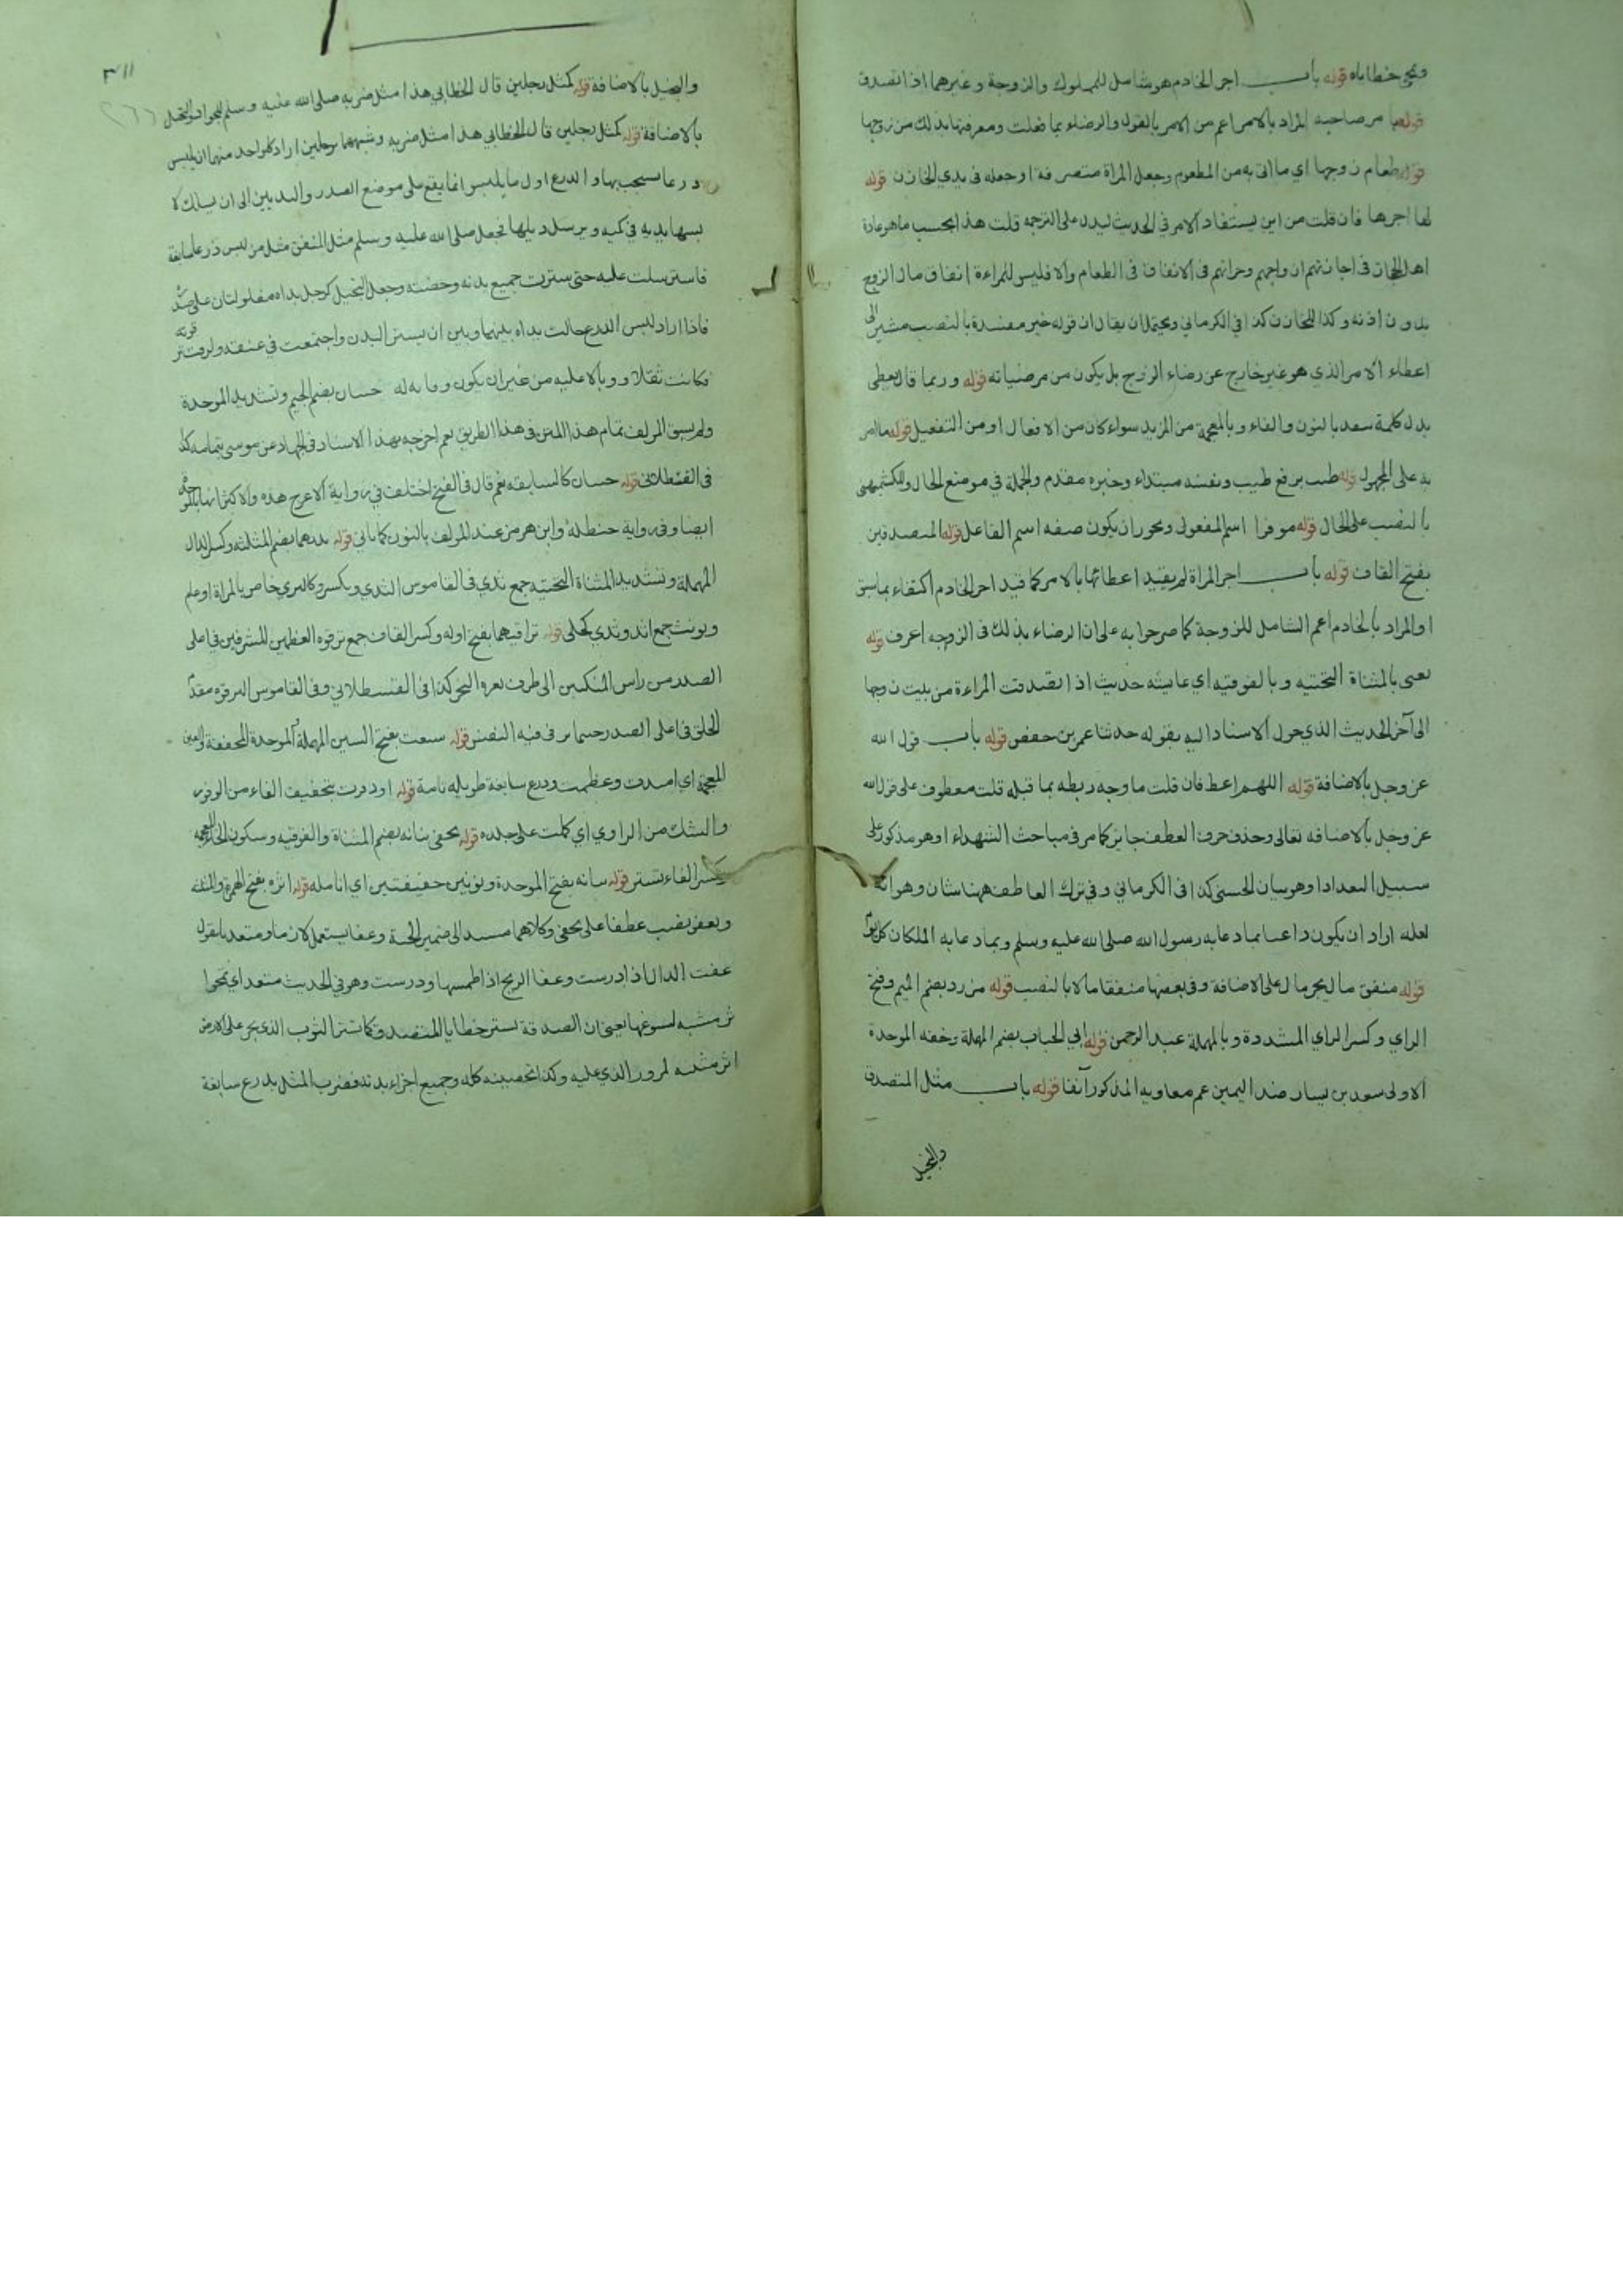 ونحو خطاياه قوله باب اجر الخادم هو شامل للمملوك والزوجة وغيرهما اذا تصدق
قوله بامر صاحبه المراد بالامر اعم من الامر بالقول والرضاء بما فعلت ومعرفتها بذلك من زوجها
قوله طعام زوجها اي ما اتى به من المطعوم وجعل المراة متصرفة او جعله في يدي الخازن قوله
لها اجرها فان قلت من اين يستفاد الامر في الحديث ليدل على الترجمه قلت هذا بحسب ما هو عادة
اهل الحجاز في اجازتهم ازواجهم وخزانهم في الانفاق في الطعام والا فليس للمراءة انفاق مال الزوج
بدون اذنه وكذا للخازن كذا في الكرماني ويحتمل ان يقال ان قوله غير مفسدة بالنصب مشير الى
اعطاء الامر الذي هو غير خارج عن رضاء الزوج بل يكون من مرضياته قوله وربما قال يعطى
بدل كلمة ينفد بالنون والفاء وبالمعجمة من المزيد سواء كان من الافعال او من التفعيل قوله ما امر
به على المجهول قوله طيب برفع طيب ونفسه مبتداء وخبره مقدم والجملة في موضع الحال وللكشميهني
بالنصب على الحال قوله موفرا اسم المفعول ويجوز ان يكون صفه اسم الفاعل قوله المتصدقين
بفتح القاف قوله باب اجر المراة لم يقيد اعطائها بالامر كما قيد اجر الخادم اكتفاء بما سبق
او المراد بالخادم اعم الشامل للزوجة كما صرحوا به على ان الرضاء بذلك في الزوجه اعرف قوله
يعنى بالمثناة التحتيه وبالفوقيه اي عايشه حديث اذا تصدقت المراءة من بيت زوجها
الى آخر الحديث الذي حول الاسناد اليه بقوله حدثنا عمر بن حفص قوله باب قول الله
عز وجل بالاضافة قوله اللهم اعط فان قلت ما وجه ربطه بما قبله قلت معطوف على قول الله
عز وجل بالاضافه تعالى وحذف حرف العطف جايز كما مر في مباحث التشهداء او هو مذكور على
سبيل التعداد اوهو بيان الحسنى كذا في الكرماني وفي ترك العاطف ههنا شان وهو انه
لعله اراد ان يكون داعيا بما دعا به رسول الله صلى الله عليه وسلم وبما دعا به الملكان كل يوم
قوله منفق مال بجر مال على الاضافة وفي بعضها منفقا مالا بالنصب قوله مزرد بضم الميم وفتح
الزاي وكسر الراي المشددة وبالمهملة عبد الرحمن قوله ابي الحباب بضم المهملة وخفه الموحدة
الاولى سعيد بن يسار ضد اليمين عم معاويه المذكور آنفا قوله باب مثل المتصدق
والبخيل
٣١١
٢٦٦
والبخيل بالاضافة قوله كمثل رجلين قال الخطابي هذا مثل ضربه صلى الله عليه وسلم للجواد والبخيل
بالاضافة قوله كمثل رجلين قال الخطابي هذا مثل ضربه وشبههما برجلين اراد كل واحد منهما ان يلبس
درعا يستجب بها والدرع اول ما يلبس انما يقع على موضع الصدر والثديين الى ان يسلك لا
بسها يديه في كميه ويرسل ذيلها فجعل صلى الله عليه وسلم مثل المنفق مثل من لبس درعا سابغة
فاسترسلت عليه حتى سترت جميع بدنه وحصنته وجعل البخيل كرجل يداه مغلولتان على صدره
فاذا اراد لبس الدرع حالت يداه بينهما وبين ان يستر البدن واجتمعت في عنقه ولزمت ترقوته
فكانت ثقلا ووبالا عليه من غير ان يكون وقاية له جبتان بضم الجيم وتشديد الموحدة
ولم يسبق المولف تمام هذا المتن في هذا الطريق نعم اخرجه بهذا الاسناد في الجهاد عن موسى بتمامه كذا
في القسطلاني قوله جبتان كالسابقه نعم قال في الفتح اختلف في رواية الاعرج هذه والاكثر انها بالموحدة
ايضا وفي رواية حنظلة وابن هرمز عند المولف بالنون كما ياتي قوله ثديهما بضم المثلثه وكسر الدال
المهملة وتشديد المثناة التحتيه جمع ثدي في القاموس الثدي ويكسر وكالثرى خاص بالمراة او عام
ويونث جمع اثد وثدي كحلى قوله تراقيهما بفتح اوله وكسر القاف جمع ترقوه العظمين المشرفين في اعلى
الصدر من راس المنكبين الى طرف ثغره النحر كذا في القسطلاني وفي القاموس الترقوه مقدم
الحلق في اعلى الصدر حيثما ترقى فيه النفس قوله سبغت بفتح السين المهملة الموحدة المخففة والغين
المعجمة اي امتدت وعظمت ودرع سابغه طويله تامة قوله او وفرت بتخفيف الفاء من الوفور
والشك من الراوي اي كملت على جلده قوله تخفى بنانه بضم المثناة والفوقيه وسكون الخاء المعجمه
وكسر الفاء تستر قوله بنانه بفتح الموحدة ونونين خفيفتين اي انامله قوله اثره بفتح الهمزة والمثلثه
وتعفو نصب عطفا على تخفى وكلاهما مسند الى ضمير الجبة وعفا يستعمل لازما ومتعديا تقول
عفت الدار اذا درست وعفا الريح اذا طمسها ودرست وهو في الحديث متعد اي تمحوا
اثر مشيه لسبوغها يعني ان الصدقة تستر خطايا المتصدق كما يستر الثوب الذي يجر على الارض
اثر مشيه لمرور الذي عليه وكذا تحصينه كله وجميع اجزاء بدنه فضرب المثل بدرع سابغة